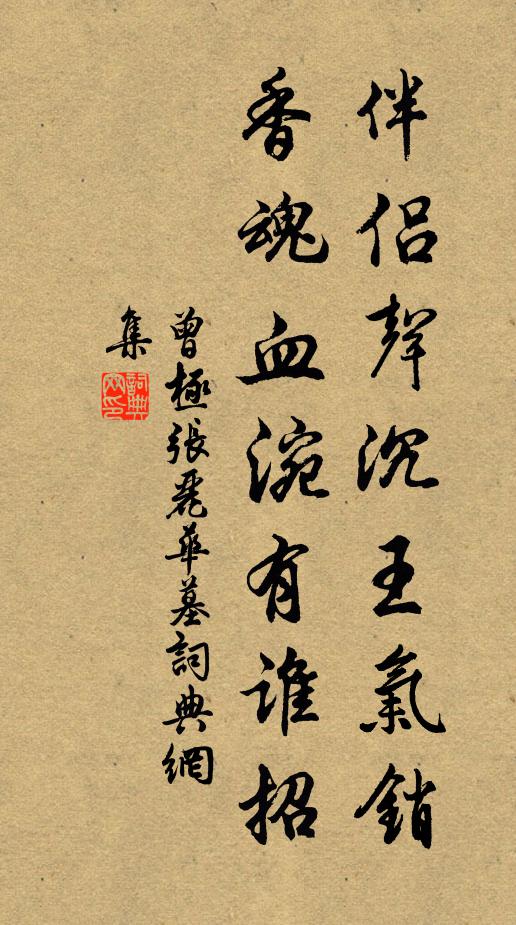 伴侶聲沉王氣銷
香魂血涴有誰招
曾極張麗華墓詞典網
集
詞典網印